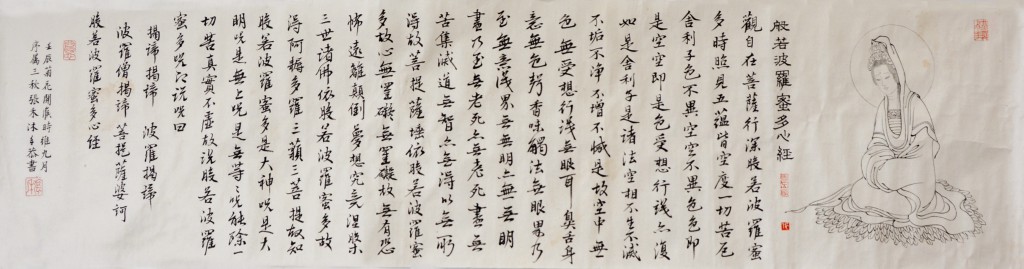 般若波羅蜜多心經
觀自在菩薩行深般若波羅蜜
多時照見五蘊皆空度一切苦厄
舍利子色不異空空不異色色即
是空空即是色受想行識亦復
如是舍利子是諸法空相不生不滅
不垢不淨不增不減是故空中無
色無受想行識無眼耳鼻舌身
意無色聲香味觸法無眼界乃
至無意識界無無明亦無無明
盡乃至無老死亦無老死盡無
苦集滅道無智亦無得以無所
得故菩提薩埵依般若波羅蜜
多故心無罣礙無罣礙故無有恐
怖遠離顛倒夢想究竟涅槃
三世諸佛依般若波羅蜜多故
得阿耨多羅三藐三菩提故知
般若波羅蜜多是大神咒是大
明咒是無上咒是無等〻咒能除一
切苦真實不虛故說般若波羅
蜜多咒即說咒曰
揭諦揭諦 波羅揭諦
波羅僧揭諦 菩提薩婆訶
般若波羅蜜多心經
壬辰菊花開 時維九月
序屬三秋張 沐手恭書